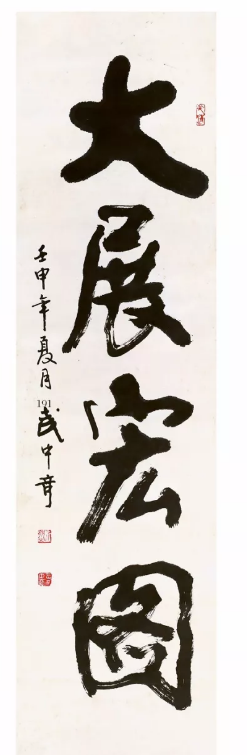 大展宏图
壬申年夏月
191
武中奇